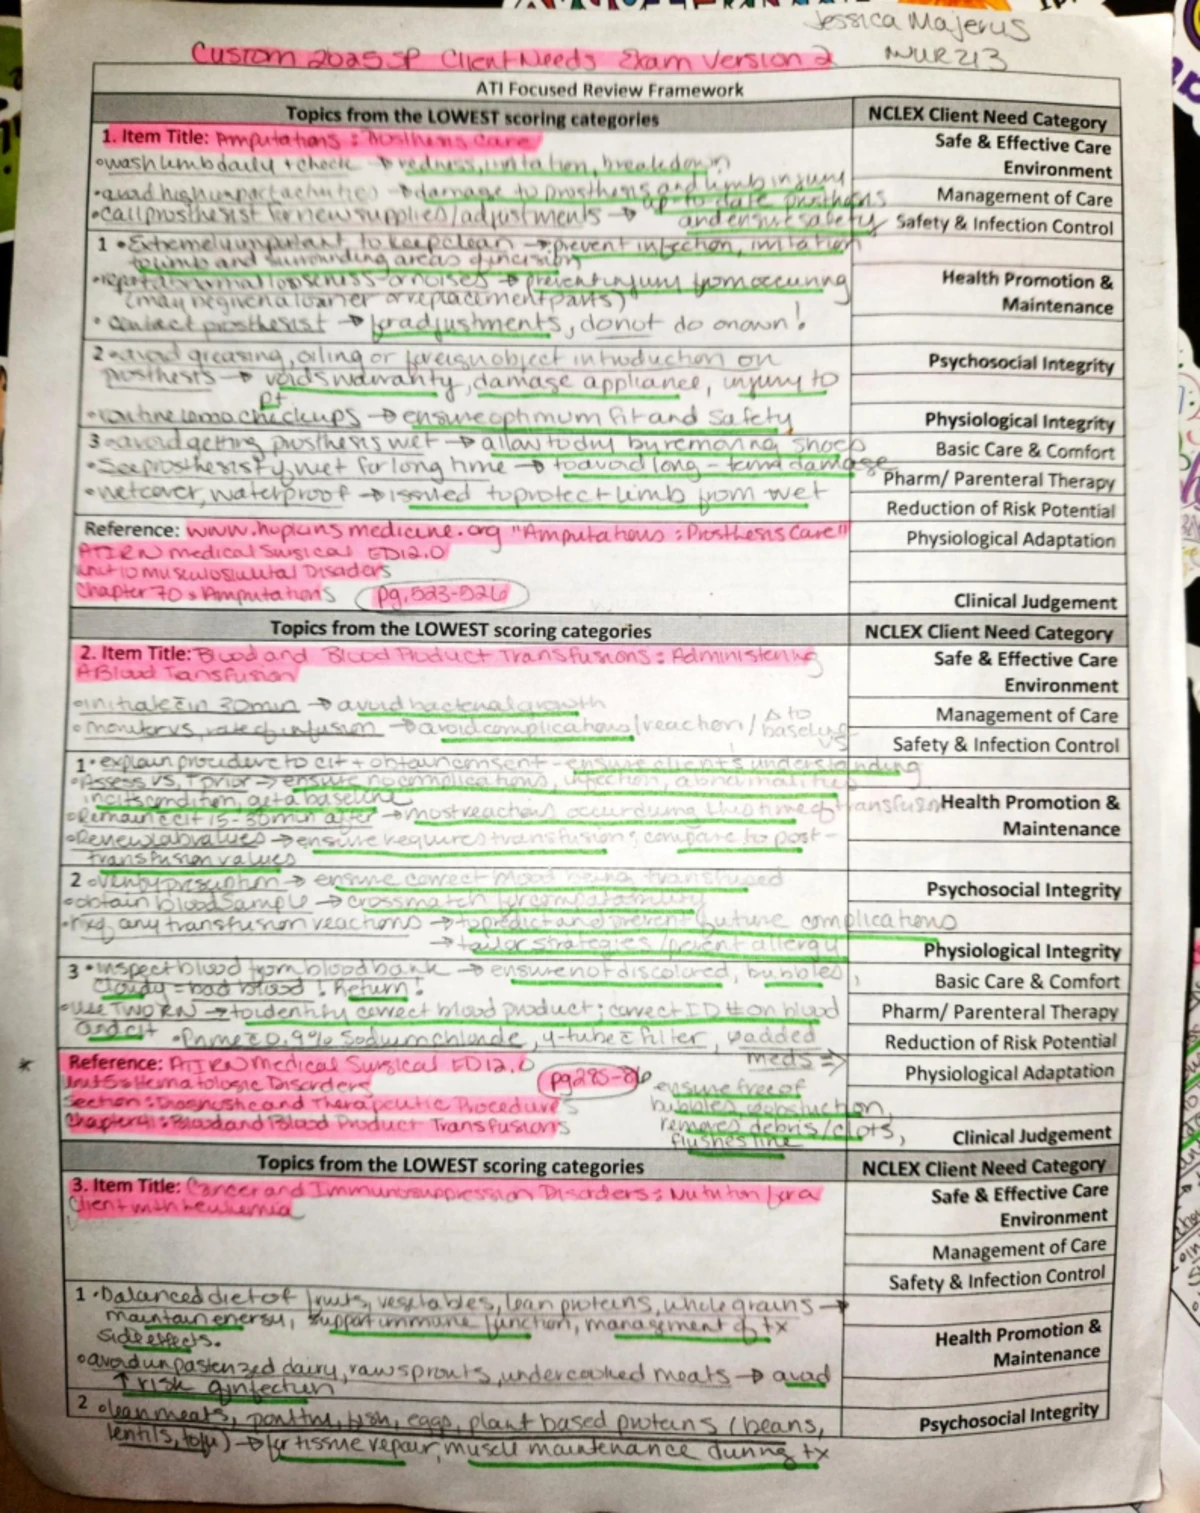 Jessica Majerus
Custom 2025 SP Client Needs Exam Version 2 NUR 213
ATI Focused Review Framework
Topics from the LOWEST scoring categories
NCLEX Client Need Category
1. Item Title: Amputations: Prosthesis Care
•wash limb daily + check → redness, irritation, breakdown
•avoid high impact activities → damage to prosthesis and limb injury
•call prosthesist for new supplies/adjustments → up-to-date prosthesis
and ensure safety
1 •Extremely important to keep clean → prevent infection, irritation
to limb and surrounding areas of incision
•report abnormal looseness or noises → prevent injury from occurring
(may be given a loaner or replacement parts)
•contact prosthesist → for adjustments, do not do on own!
2 •avoid greasing, oiling or foreign object introduction on
prosthesis → voids warranty, damage appliance, injury to
pt
•routine checkups → ensure optimum fit and safety
3 •avoid getting prosthesis wet → allow to dry by removing shoes
•See prosthesist if wet for long time → to avoid long-term damage
•wet cover, waterproof → issued to protect limb from wet
Reference: www.hopkinsmedicine.org "Amputations: Prosthesis Care"
ATI RN Medical Surgical ED 12.0
Unit 10 Musculoskeletal Disorders
Chapter 70: Amputations pg. 523-526
Safe & Effective Care
Environment
Management of Care
Safety & Infection Control
Health Promotion &
Maintenance
Psychosocial Integrity
Physiological Integrity
Basic Care & Comfort
Pharm/ Parenteral Therapy
Reduction of Risk Potential
Physiological Adaptation
Clinical Judgement
Topics from the LOWEST scoring categories
NCLEX Client Need Category
2. Item Title: Blood and Blood Product Transfusions: Administering
A Blood Transfusion
•initiate c̄ in 30 min → avoid bacterial growth
•monitor vs, rate of infusion → avoid complications/reaction/ Δ to
baseline
VS
1 •explain procedure to clt + obtain consent - ensure client's understanding
•Assess VS, T prior → ensure no complications, infection, abnormalities
in clts condition, get a baseline
•Remain c̄ clt 15-30 min after → most reactions occur during this time of transfusion
•Review lab values → ensure requires transfusion; compare to post-
transfusion values
2 •verify prescription → ensure correct blood being transfused
•obtain blood sample → crossmatch for compatability
any transfusion reactions → to predict and prevent future complications
→ tailor strategies/prevent allergy
3 •inspect blood from blood bank → ensure not discolored, bubbles,
cloudy = bad blood! Return!
•use TWO RN → to identify correct blood product; correct ID # on blood
and clt •Prime c̄ 0.9% Sodium chloride, y-tube c̄ filter, added
meds →
ensure free of
bubbles, obstuction,
removes debris/clots,
flushes line
Reference: ATI RN Medical Surgical ED 12.0
Unit 5: Hematologic Disorders pg 285-86
Section: Diagnostic and Therapeutic Procedures
Chapter 41: Blood and Blood Product Transfusions
Safe & Effective Care
Environment
Management of Care
Safety & Infection Control
Health Promotion &
Maintenance
Psychosocial Integrity
Physiological Integrity
Basic Care & Comfort
Pharm/ Parenteral Therapy
Reduction of Risk Potential
Physiological Adaptation
Clinical Judgement
Topics from the LOWEST scoring categories
NCLEX Client Need Category
3. Item Title: Cancer and Immunosuppression Disorders: Nutrition for a
Client with Leukemia
1 •Balanced diet of fruits, vegetables, lean proteins, whole grains →
maintain energy, support immune function, managment of tx
side effects.
•avoid unpasteurized dairy, raw sprouts, undercooked meats → avoid
↑ risk of infection
2 •lean meats, poultry, fish, eggs, plant based proteins (beans,
lentils, tofu) → for tissue repair, muscle maintenance during tx
Safe & Effective Care
Environment
Management of Care
Safety & Infection Control
Health Promotion &
Maintenance
Psychosocial Integrity